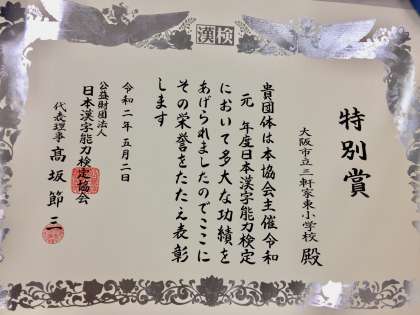 漢検
特別賞
大阪市立三軒家東小学校 殿
貴団体は本協会主催令和
元 年度日本漢字能力検定
において多大な功績を
あげられましたのでここに
その栄誉をたたえ表彰
します
令和二年五月二日
公益財団法人
日本漢字能力検定協会
代表理事 髙坂節三